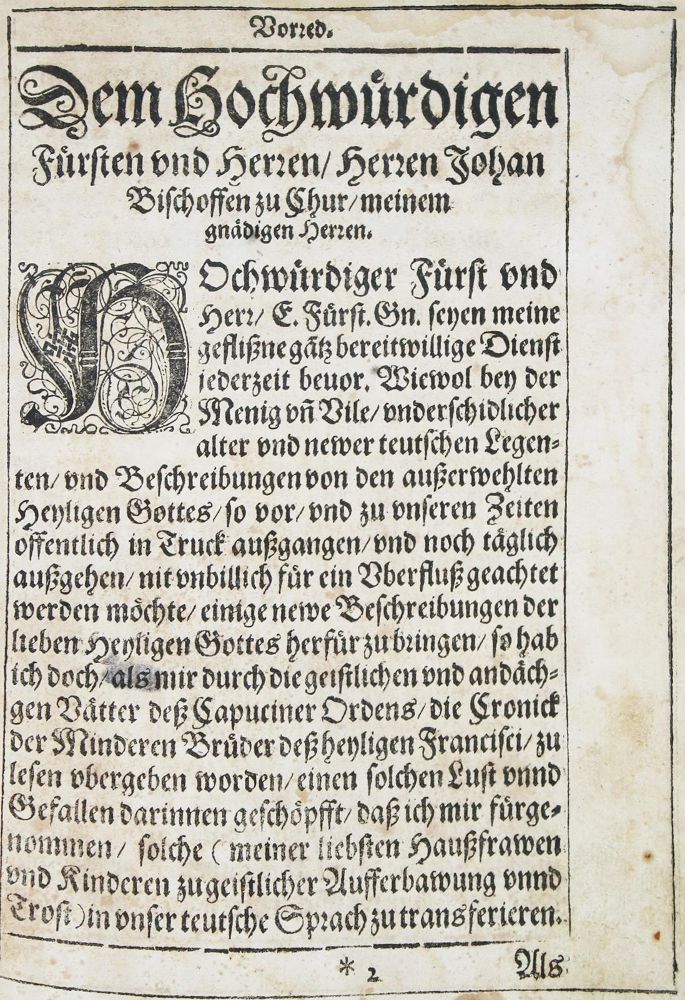 Vorred.
Dem Hochwürdigen
Fürsten vnd Herren/ Herren Johan
Bischoffen zu Chur/ meinem
gnädigen Herren.
HOchwürdiger Fürst vnd
Herr/ E. Fürst. Gn. seyen meine
geflißne gãtz bereitwillige Dienst
jederzeit beuor. Wiewol bey der
Menig vñ Vile/ vnderschidlicher
alter vnd newer teutschen Legen-
ten/ vnd Beschreibungen von den außerwehlten
Heyligen Gottes/ so vor/ vnd zu vnseren Zeiten
offentlich in Truck außgangen/ vnd noch täglich
außgehen/ nit vnbillich für ein Vberfluß geachtet
werden möchte/ einige newe Beschreibungen der
lieben Heyligen Gottes herfür zu bringen/ so hab
ich doch/ als mir durch die geistlichen vnd andäch-
gen Vätter deß Capuciner Ordens/ die Cronick
der Minderen Brüder deß heyligen Francisci/ zu
lesen vbergeben worden/ einen solchen Lust vnnd
Gefallen darinnen geschöpfft/ daß ich mir fürge-
nommen/ solche (meiner liebsten Haußfrawen
vnd Kinderen zu geistlicher Aufferbawung vnnd
Trost) in vnser teutsche Sprach zu transferieren.
* 2 Als